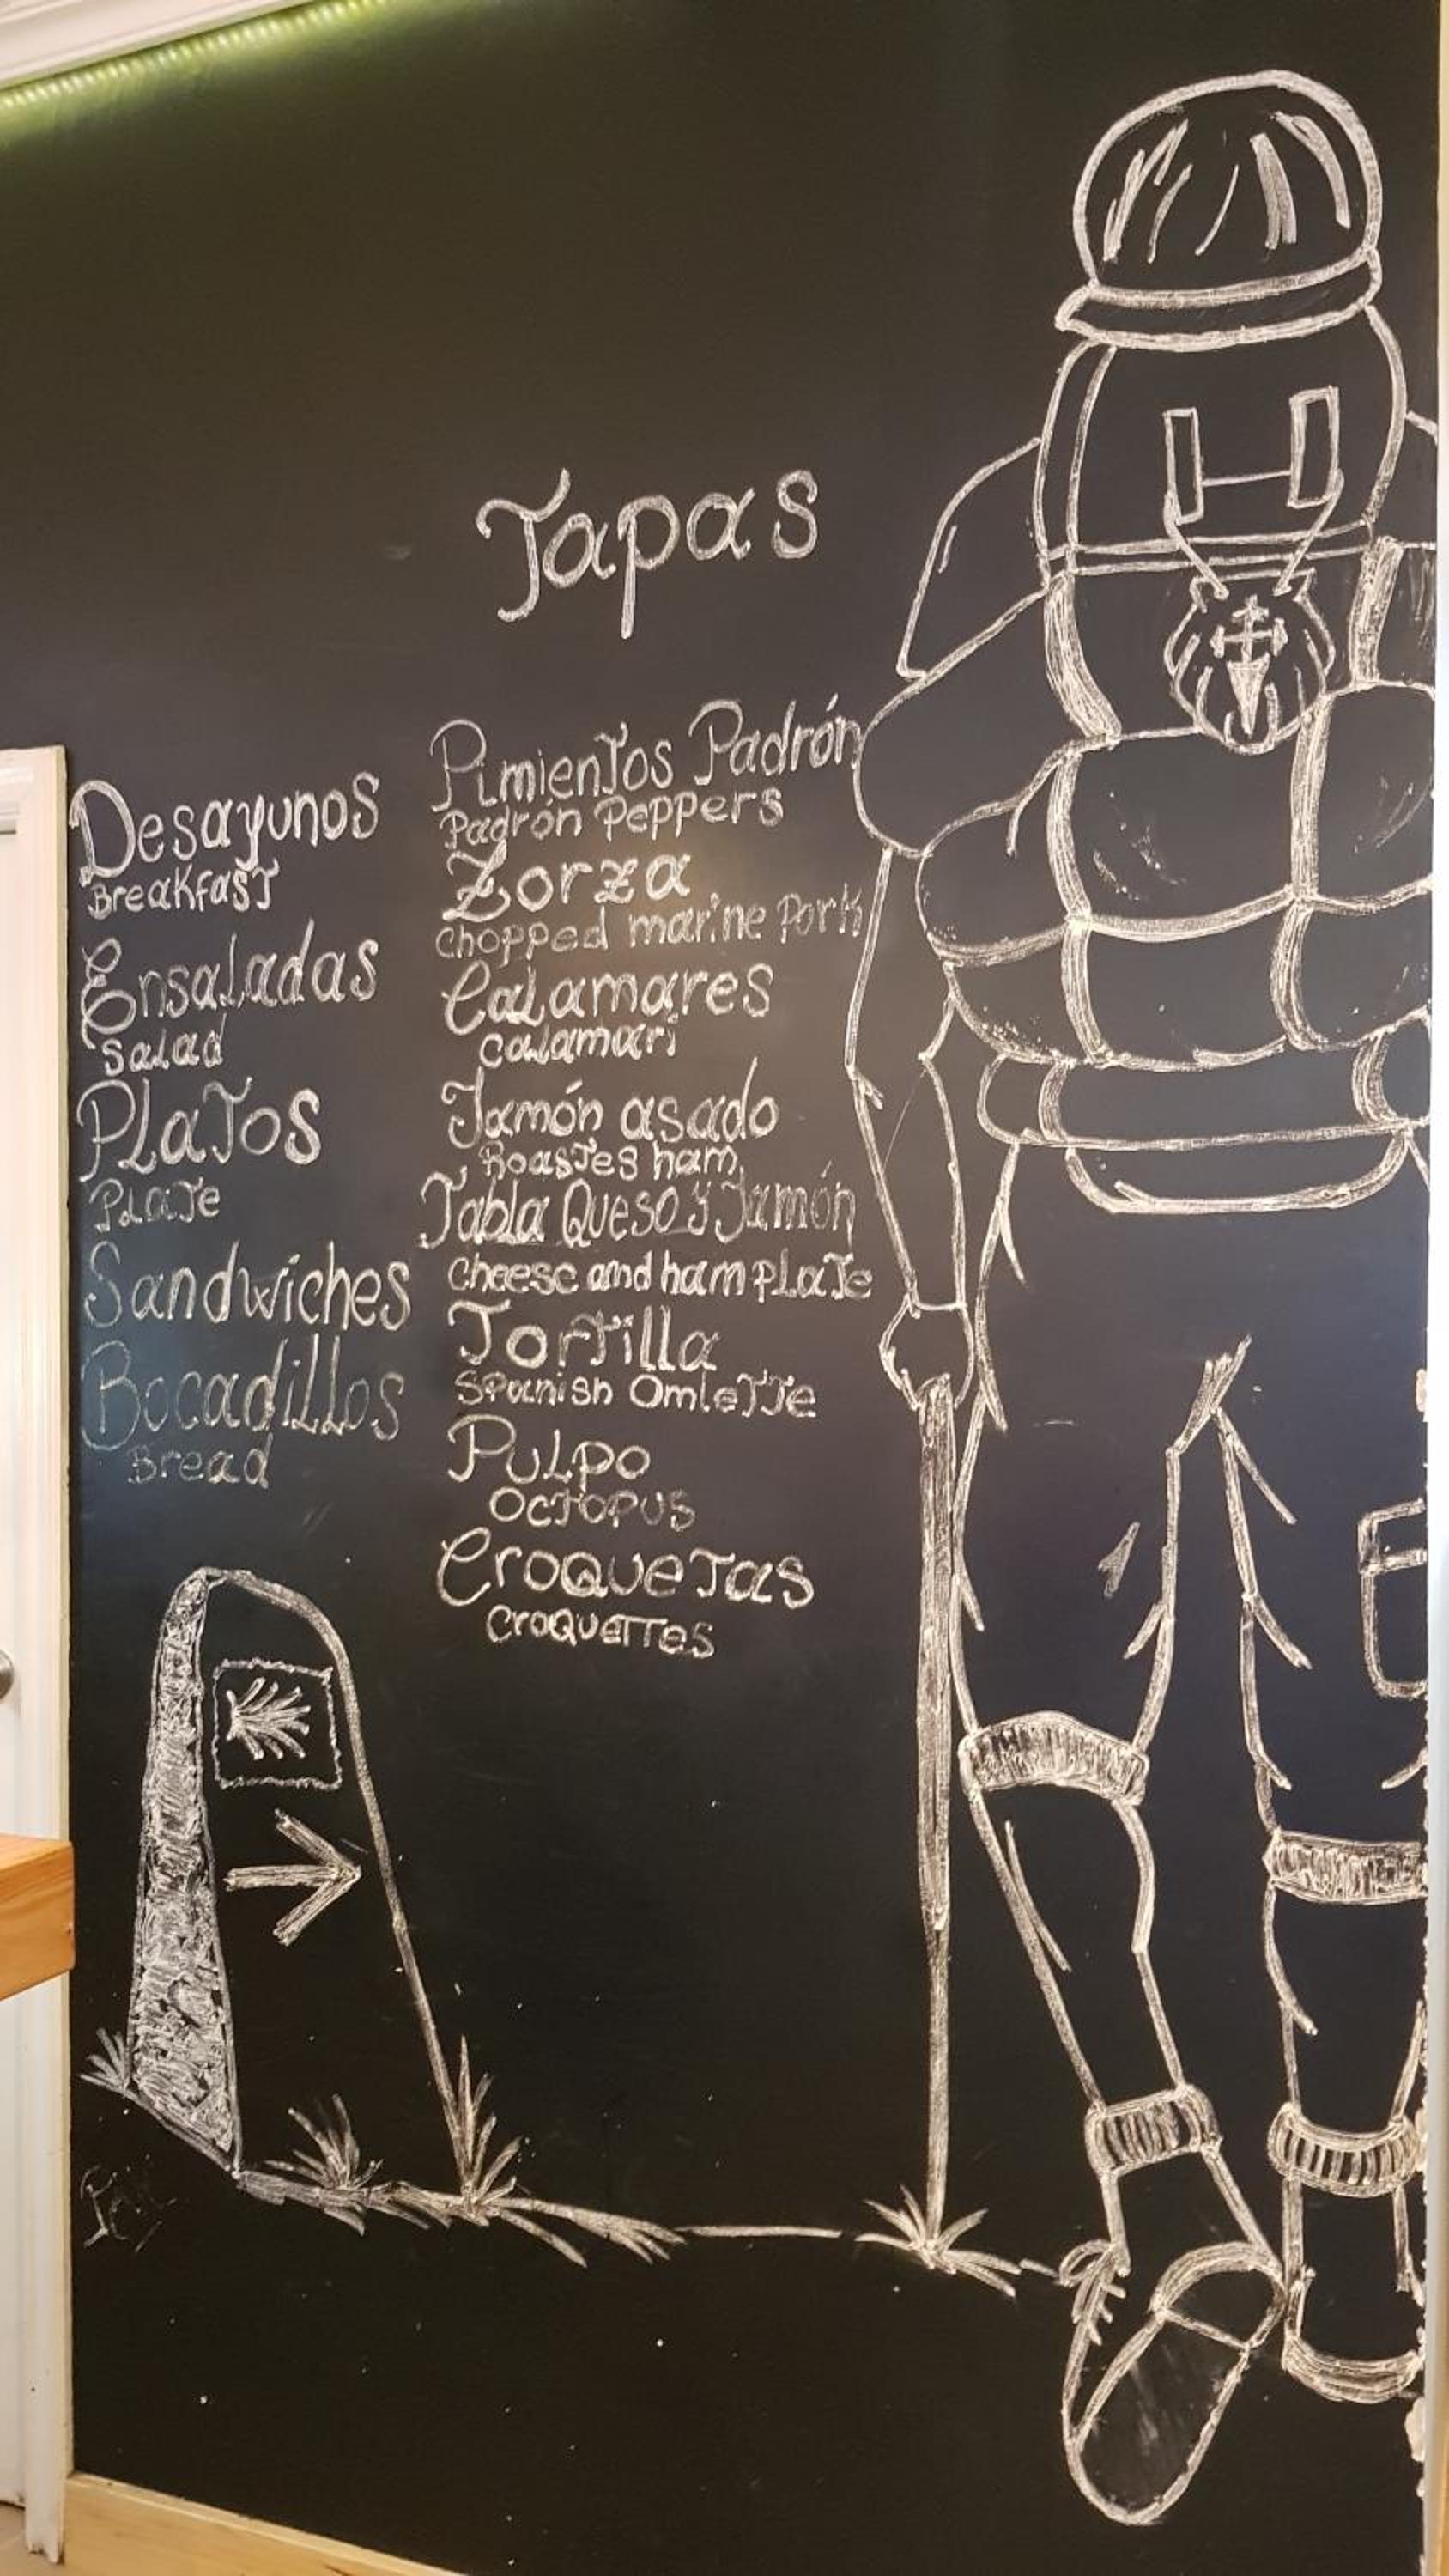 Tapas
Desayunos
Breakfast
Ensaladas
Salad
Platos
Plate
Sandwiches
Bocadillos
Bread
Pimientos Padrón
Padrón Peppers
Zorza
chopped marine Pork
Calamares
calamari
Jamón asado
Roastes ham
Tabla Queso y Jamón
cheese and ham plate
Tortilla
Spanish Omlette
Pulpo
Octopus
Croquetas
croquettes